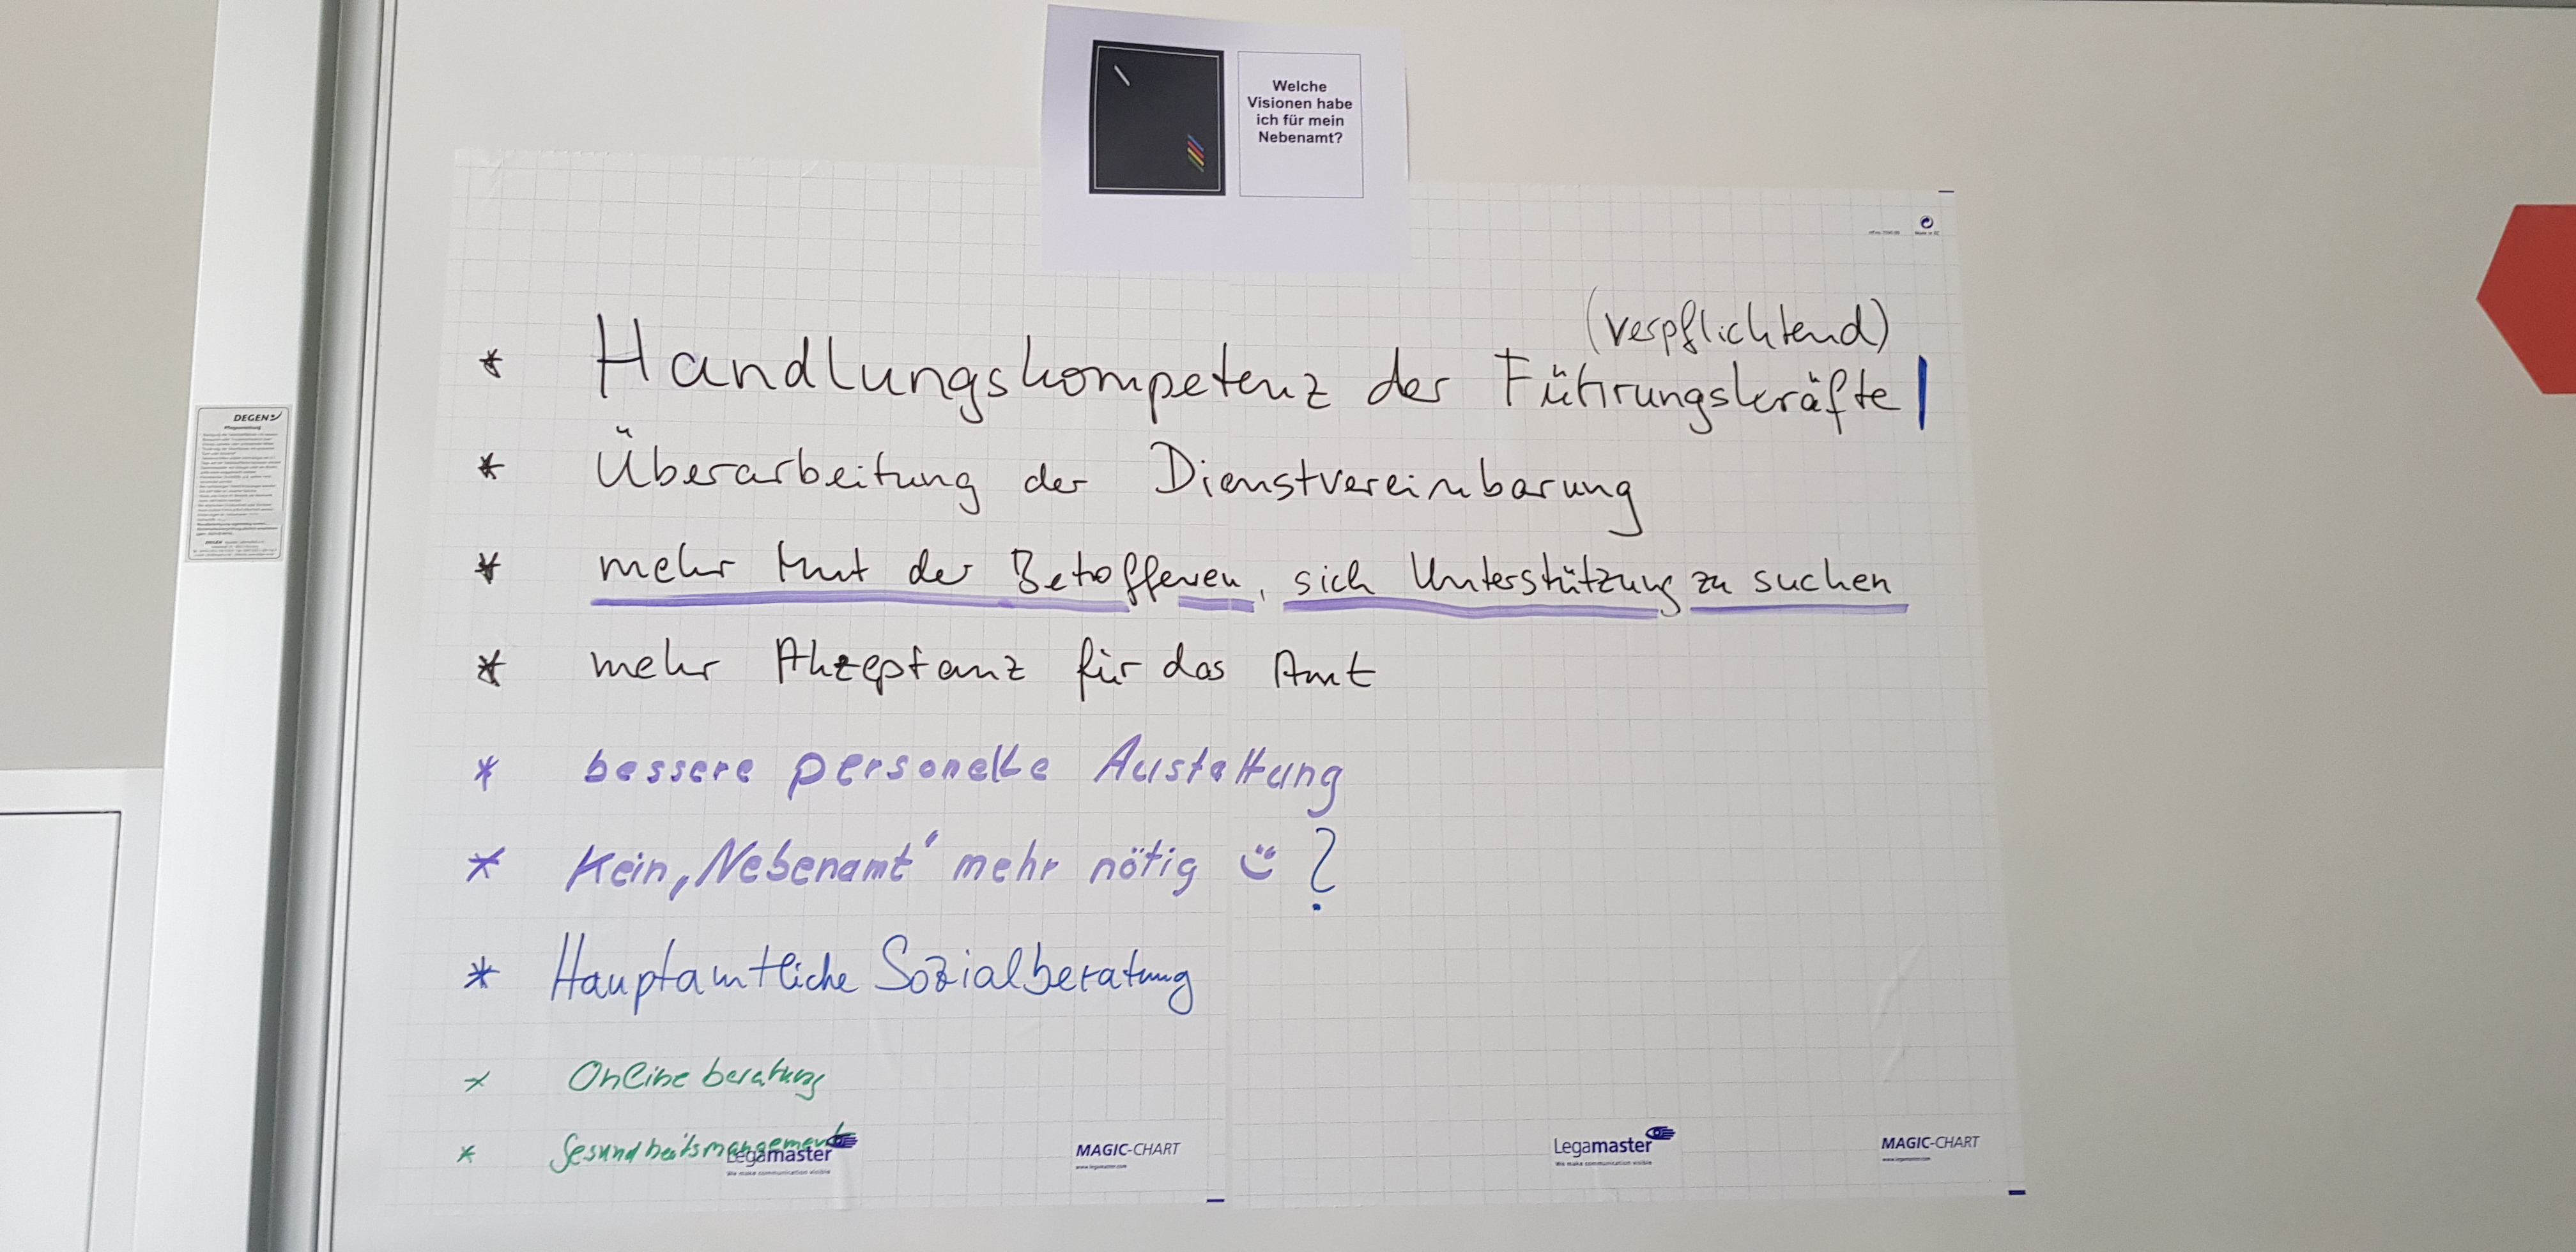 Welche
Visionen habe
ich für mein
Nebenamt?
(verpflichtend)
* Handlungskompetenz der Führungskräfte
* Überarbeitung der Dienstvereinbarung
* mehr Mut der Betoffenen, sich Unterstützung zu suchen
* mehr Akzeptanz für das Amt
* bessere personelle Austattung
* Kein „Nebenamt" mehr nötig ?
* Hauptamtliche Sozialberatung
* Onlineberatung
* Gesundheitsmangement
Legamaster
We make communication visible
MAGIC-CHART
www.legamaster.com
Legamaster
We make communication visible
MAGIC-CHART
www.legamaster.com
Made in EC
DEGEN
Pflegeanleitung